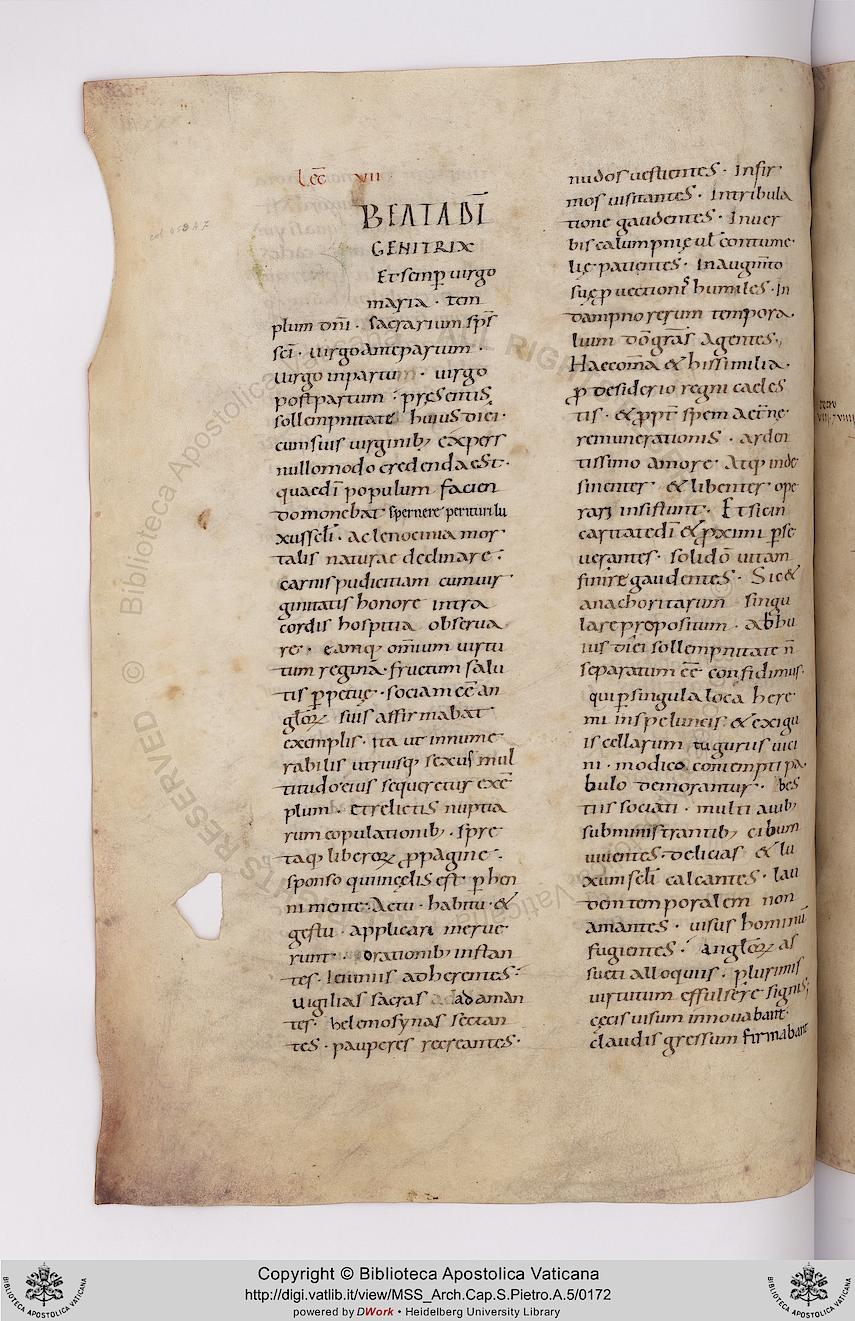 Lec̄ VII
BEATA DĪ
GENITRIX
Et semp̄ uirgo
maria · tem
plum dn̄i · sacrarium sp̄s
sc̄i · uirgo ante partum ·
uirgo in partu · uirgo
post partum · presentis
sollempnitate huius diei ·
cum suis uirginib; expers
nullomodo credenda est ·
quae dī populum facien
do monebat spernere perituri lu
xus sc̄li · ac lenocinia mor
talis naturae declinare ·
carnis pudicitiam cum uir
ginitatis honore intra
cordis hospitia obserua
re · eamq; omnium uirtu
tum reginā · fructum salu
tis p̄petuę · sociam eē an
gl̄oꝝ suis affirmabat
exemplis · ita ut innume
rabilis utriusq; sexus mul
titudo eius sequeretur exē
plum · et relictis nuptia
rum copulationib; · spre
taq; liberoꝝ ꝓpagine ·
sponso qui in cęlis est · p̄hen
ni mente · Actu · habitu · &
gestu · applicari merue
runt · orationib; instan
tes · Ieiuniis adherentes ·
uigilias sacras adaman
tes · helemosynas sectan
tes · pauperes recreantes ·
nudos uestientes · Infir
mos uisitantes · Intribula
tione gaudentes · Inuer
bis calumpnię ul̄ contume
lię patientes · In augm̄to
suę ꝓuectionis humiles · In
dampno rerum tempora
lium dō gr̄as agentes ·
Haec om̄a & his similia ·
ꝓ desiderio regni caeles
tis · & ꝓpt̄ spem aet̄ne
remunerationis · arden
tissimo amore · Atq; inde
sinenter · & libenter ope
rari insistunt · Et sic in
caritate dī & ꝓximi p̄se
uerantes · solidō uitam
finire gaudentes · Sic &
anachoritarum singu
lare propositum · ab hu
ius diei sollempnitate n̄
separatum eē confidimus ·
qui p̄ singula loca here
mi in speluncis & exigu
is cellarum tuguriis uici
ni · modico contempti pa
bulo demorantur · bes
tiis sociati · multi auib;
subministrantib; cibum
uiuentes · delicias & lu
xum sc̄li calcantes · lau
dem temporalem non
amantes · uisus hominū
fugientes · angl̄oꝝ as
sueti alloquiis · plurimis
uirtutum effulsere signis ·
cęcis uisum innouabant ·
claudis gressum firmabant
Copyright © Biblioteca Apostolica Vaticana
http://digi.vatlib.it/view/MSS_Arch.Cap.S.Pietro.A.5/0172
powered by DWork • Heidelberg University Library